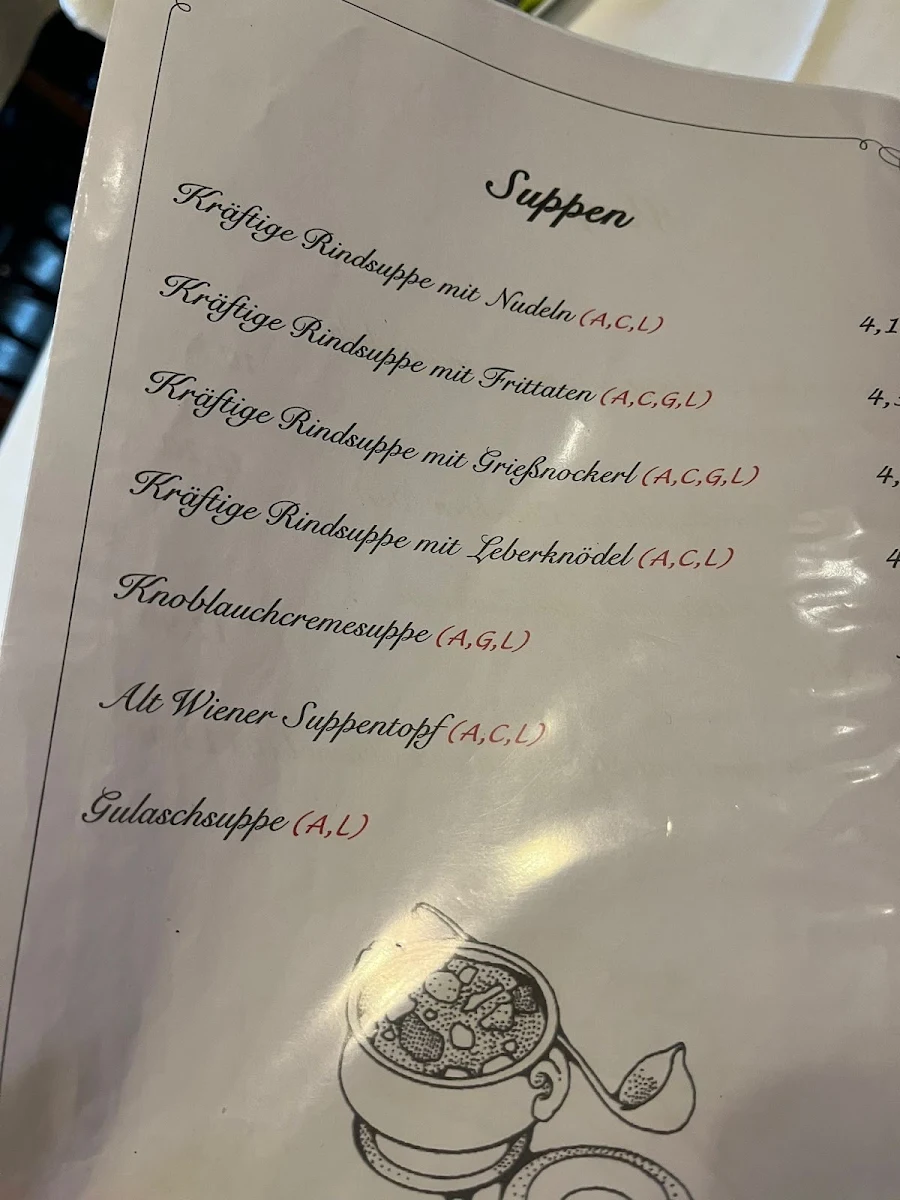 Suppen
Kräftige Rindsuppe mit Nudeln (A,C,L) 4,1
Kräftige Rindsuppe mit Frittaten (A,C,G,L) 4,
Kräftige Rindsuppe mit Grießnockerl (A,C,G,L) 4,
Kräftige Rindsuppe mit Leberknödel (A,C,L) 4
Knoblauchcremesuppe (A,G,L)
Alt Wiener Suppentopf (A,C,L)
Gulaschsuppe (A,L)